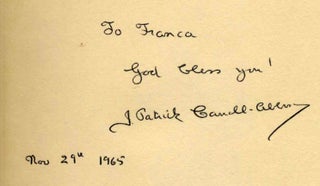 To Franca
God bless you!
J. Patrick Carroll-
Nov 29th 1965